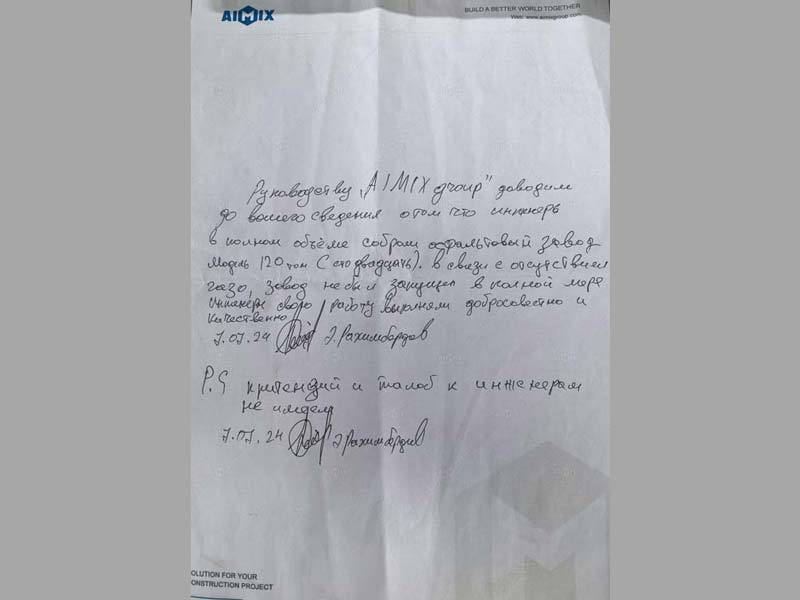 AIMIX
BUILD A BETTER WORLD TOGETHER
Web: www.aimixgroup.com
Руководству „AIMIX group" доводим
до вашего сведения о том что инженеры
в полном объёме собрали асфальтовый завод
Модель 120 тон (сто двадцать). в связи с отсутствием
газа, завод не был запущен в полной мере
Инженеры свою работу выполняли добросовестно и
качественно
7.07.24 Э. Рахимбердов
P.S критензий и талоб к инженерам
не имдем
7.07.24 Э. Рахимбердов
OLUTION FOR YOUR
ONSTRUCTION PROJECT